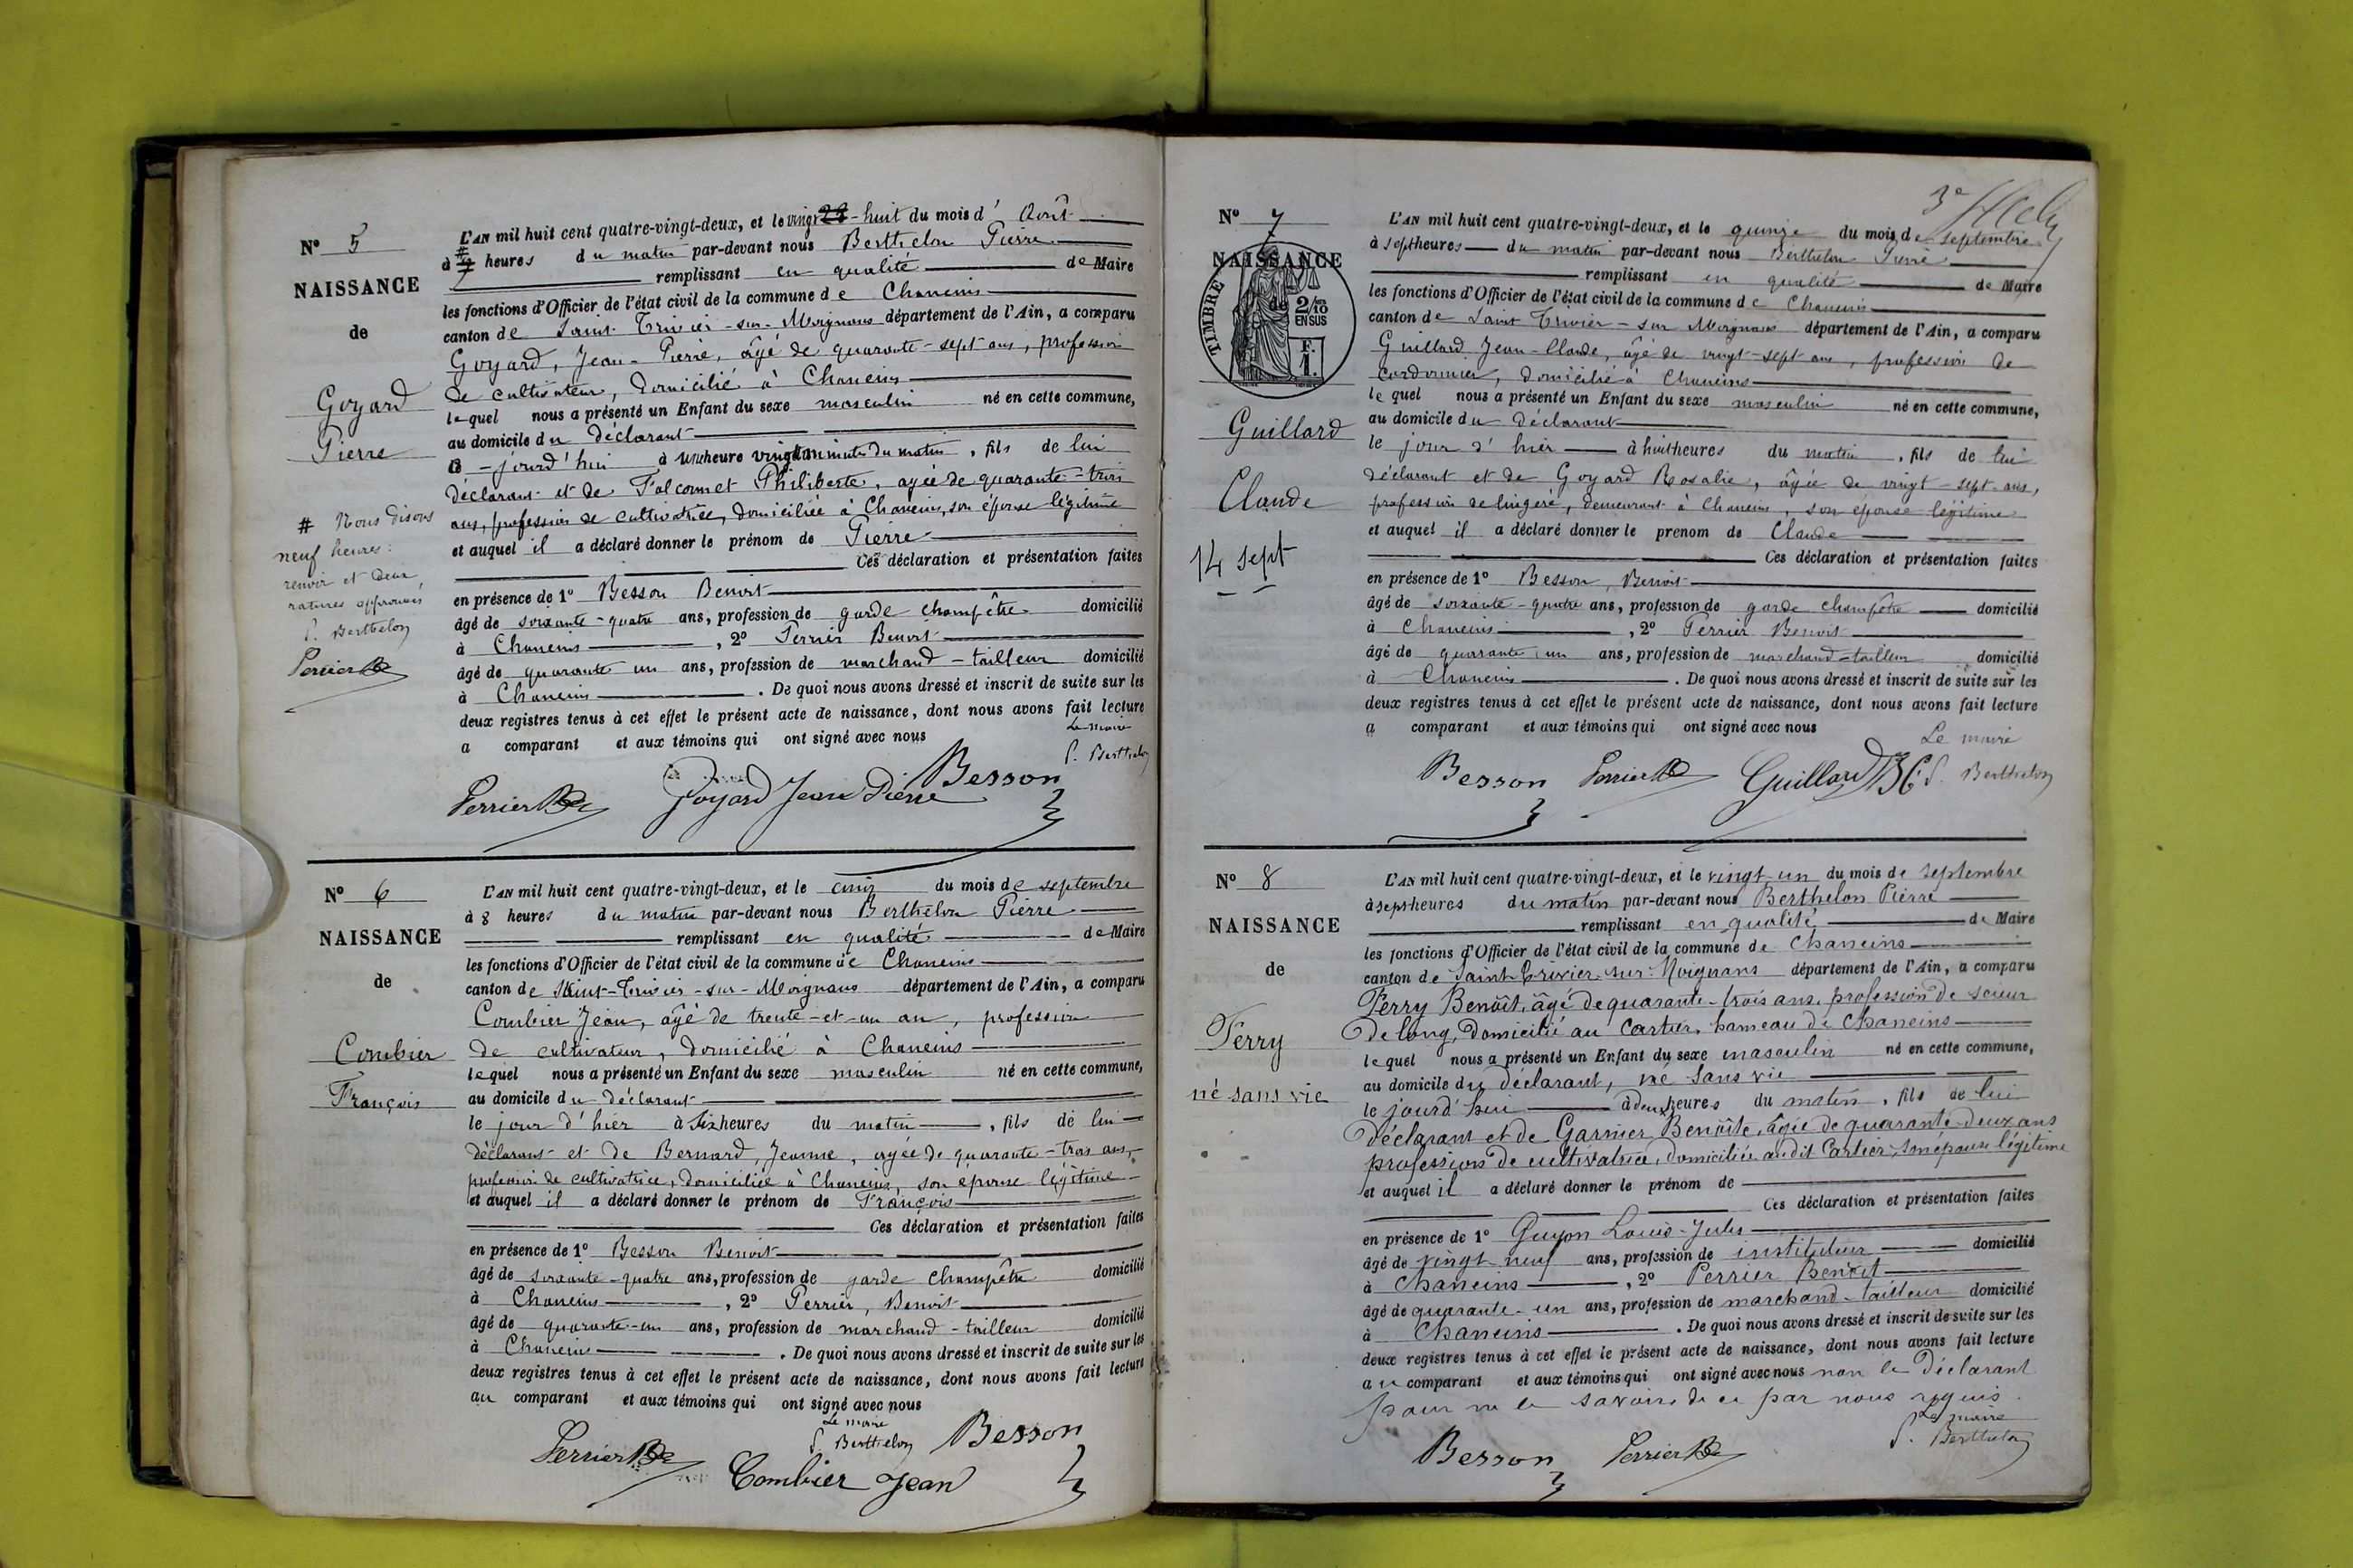 N° 5
NAISSANCE
de
Goyard
Pierre
# Nous disons
neuf heures :
renvoi et deux
ratures approuvés
P. Berthelon
Perrier
L'AN mil huit cent quatre-vingt-deux, et le vingt-huit du mois d' Août
à # heures du matin par-devant nous Berthelon Pierre
remplissant en qualité de Maire
les fonctions d'Officier de l'état civil de la commune de Chaneins
canton de Saint-Trivier-sur-Moignans département de l'Ain, a comparu
Goyard, Jean-Pierre, âgé de quarante-sept ans, profession
de cultivateur, domicilié à Chaneins
lequel nous a présenté un Enfant du sexe masculin né en cette commune,
au domicile du déclarant
-jourd'hui à une heure vingt minutes du matin, fils de lui
déclarant et de Falconnet Philiberte, agée de quarante-trois
ans, profession de cultivatrice, domiciliée à Chaneins, son épouse légitime
et auquel il a déclaré donner le prénom de Pierre
Ces déclaration et présentation faites
en présence de 1° Besson Benoit
âgé de soixante-quatre ans, profession de garde champêtre domicilié
à Chaneins, 2° Perrier Benoit
âgé de quarante un ans, profession de marchand-tailleur domicilié
à Chaneins. De quoi nous avons dressé et inscrit de suite sur les
deux registres tenus à cet effet le présent acte de naissance, dont nous avons fait lecture
a comparant et aux témoins qui ont signé avec nous
Le maire
P. Berthelon
Perrier Goyard Jean Pierre Besson
N° 6
NAISSANCE
de
Combier
François
L'AN mil huit cent quatre-vingt-deux, et le cinq du mois de septembre
à 8 heures du matin par-devant nous Berthelon Pierre
remplissant en qualité de Maire
les fonctions d'Officier de l'état civil de la commune de Chaneins
canton de Saint-Trivier-sur-Moignans département de l'Ain, a comparu
Combier Jean, âgé de trente-et-un an, profession
de cultivateur, domicilié à Chaneins
lequel nous a présenté un Enfant du sexe masculin né en cette commune,
au domicile du déclarant
le jour d'hier à six heures du matin, fils de lui
déclarant et de Bernard, Jeanne, agée de quarante-trois ans,
profession de cultivatrice, domiciliée à Chaneins, son épouse légitime
et auquel il a déclaré donner le prénom de François
Ces déclaration et présentation faites
en présence de 1° Besson Benoit
âgé de soixante-quatre ans, profession de garde champêtre domicilié
à Chaneins, 2° Perrier, Benoit
âgé de quarante-un ans, profession de marchand-tailleur domicilié
à Chaneins. De quoi nous avons dressé et inscrit de suite sur les
deux registres tenus à cet effet le présent acte de naissance, dont nous avons fait lecture
au comparant et aux témoins qui ont signé avec nous
Le maire
P. Berthelon Besson
Perrier Combier Jean
3e
N° 7
NAISSANCE
TIMBRE
de 2/10
EN SUS
F.
1.
Guillard
Claude
14 sept
L'AN mil huit cent quatre-vingt-deux, et le quinze du mois de septembre
à sept heures du matin par-devant nous Berthelon Pierre
remplissant en qualité de Maire
les fonctions d'Officier de l'état civil de la commune de Chaneins
canton de Saint Trivier-sur Moignans département de l'Ain, a comparu
Guillard Jean-Claude, âgé de vingt-sept ans, profession de
cordonnier, domicilié à Chaneins
lequel nous a présenté un Enfant du sexe masculin né en cette commune,
au domicile du déclarant
le jour d'hier à huit heures du matin, fils de lui
déclarant et de Goyard Rosalie, âgée de vingt-sept-ans,
profession de lingère, demeurant à Chaneins, son épouse légitime
et auquel il a déclaré donner le prenom de Claude
Ces déclaration et présentation faites
en présence de 1° Besson, Benoit
âgé de soixante-quatre ans, profession de garde champêtre domicilié
à Chaneins, 2° Perrier Benoit
âgé de quarante un ans, profession de marchand-tailleur domicilié
à Chaneins. De quoi nous avons dressé et inscrit de suite sur les
deux registres tenus à cet effet le présent acte de naissance, dont nous avons fait lecture
a comparant et aux témoins qui ont signé avec nous
Le maire
Besson Perrier Guillard P. Berthelon
N° 8
NAISSANCE
de
Ferry
né sans vie
L'AN mil huit cent quatre-vingt-deux, et le vingt-un du mois de septembre
à sept heures du matin par-devant nous Berthelon Pierre
remplissant en qualité de Maire
les fonctions d'Officier de l'état civil de la commune de Chaneins
canton de Saint-Trivier-sur-Moignans département de l'Ain, a comparu
Ferry Benoît, âgé de quarante-trois ans, profession de scieur
de long, domicilié au Cartier, hameau de Chaneins
lequel nous a présenté un Enfant du sexe masculin né en cette commune,
au domicile du déclarant, né sans vie
le jourd'hui à deux heures du matin, fils de lui
déclarant et de Garnier Benoîte, âgée de quarante-deux ans
profession de cultivatrice, domiciliée audit Cartier, son épouse légitime
et auquel il a déclaré donner le prénom de
Ces déclaration et présentation faites
en présence de 1° Guyon Louis-Jules
âgé de vingt neuf ans, profession de instituteur domicilié
à Chaneins, 2° Perrier Benoit
âgé de quarante-un ans, profession de marchand-tailleur domicilié
à Chaneins. De quoi nous avons dressé et inscrit de suite sur les
deux registres tenus à cet effet le présent acte de naissance, dont nous avons fait lecture
au comparant et aux témoins qui ont signé avec nous non le déclarant
pour ne le savoir de ce par nous requis.
Le maire
Besson Perrier P. Berthelon